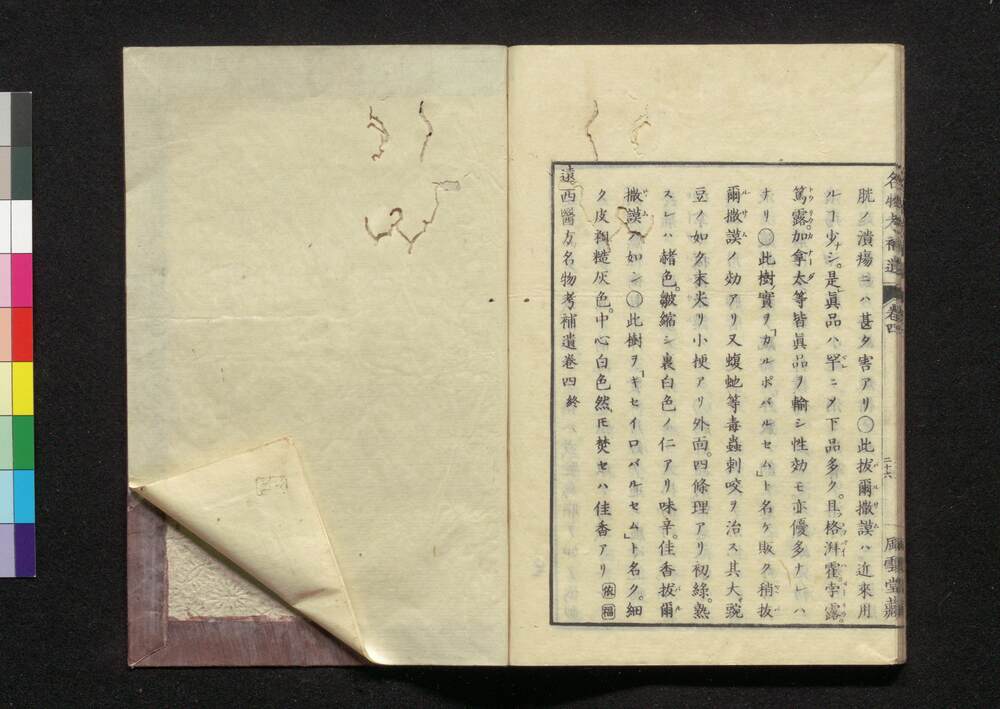 名物考補遺 卷四 二十六 風雲堂藏
胱ノ潰瘍ニハ甚タ害アリ○此拔爾撒謨ハ近來用
ルヿ少シ。是眞品ハ罕ニメ下品多ク。且格湃霍孛露。
篤露。加拿太等皆眞品ヲ輸シ性効モ亦優多ナレハ
ナリ○此樹實ヲ「カルポバルセム」ト名ケ販ク稍拔
爾撒謨ノ効アリ又蝮虵等毒蟲刺咬ヲ治ス其大豌
豆ノ如ク末尖リ小梗アリ外面。四條理アリ初綠。熟
スレハ赭色。皺縮シ裏白色ノ仁アリ味辛。佳香拔爾
撒謨ノ如シ○此樹ヲ「キセイロバルセム」ト名ク。細
ク皮粗糙灰色。中心白色然𪜈焚セハ佳香アリ 依福
遠西醫方名物考補遺卷四終